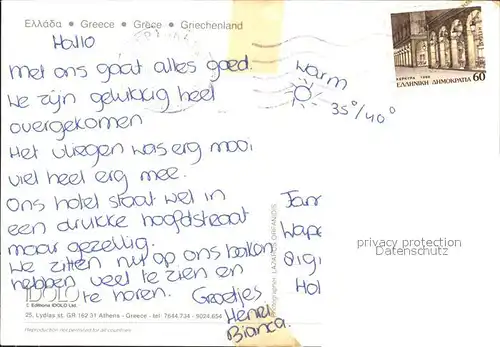 Ελλάδα • Greece • Grèce • Griechenland
Hallo
Met ons gaat alles goed.
We zijn gelukkig heel
overgekomen
Het vliegen was erg mooi
viel heel erg mee.
Ons hotel staat wel in
een drukke hoofdstraat
maar gezellig.
We zitten nu op ons balkon
hebben veel te zien en
te horen. Groetjes
Henri
Bianca.
warm
35°/40°
ΚΕΡΚΥΡΑ 1988
ΕΛΛΗΝΙΚΗ ΔΗΜΟΚΡΑΤΙΑ 60
Jan
Wape
privacy protection
Datenschutz
Hol
IDOLO
© Editions IDOLO Ltd.
25, Lydias st. GR-162 31 Athens - Greece - tel: 7644.734 - 9024.654
Reproduction not permitted for all countries
Photographer: LAZAROS ORFANIDIS